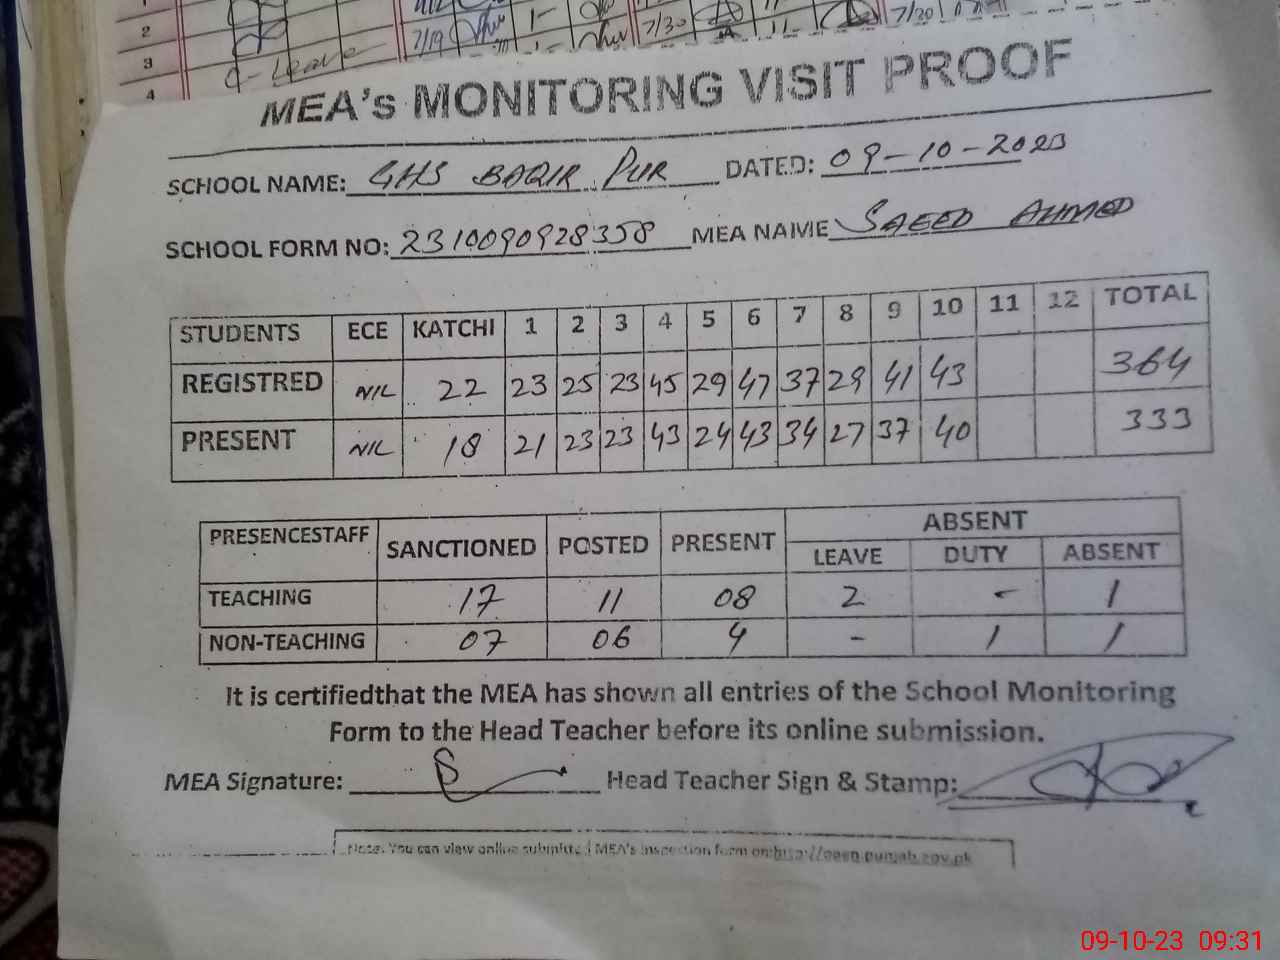 2
3
4
7/19
7/30
7/30
a - Leave
MEA's MONITORING VISIT PROOF
SCHOOL NAME: GHS BAQIR PUR DATED: 09-10-2023
SCHOOL FORM NO: 2310090928358 MEA NAME SAEED AHMED
STUDENTS ECE KATCHI 1 2 3 4 5 6 7 8 9 10 11 12 TOTAL
REGISTRED NIL 22 23 25 23 45 29 47 37 29 41 43 364
PRESENT NIL 18 21 23 23 43 24 43 34 27 37 40 333
PRESENCESTAFF SANCTIONED POSTED PRESENT ABSENT
LEAVE DUTY ABSENT
TEACHING 17 11 08 2 - 1
NON-TEACHING 07 06 4 - 1 1
It is certifiedthat the MEA has shown all entries of the School Monitoring
Form to the Head Teacher before its online submission.
MEA Signature: Head Teacher Sign & Stamp:
Note: You can view online submitted MEA's inspection form on:
09-10-23 09:31